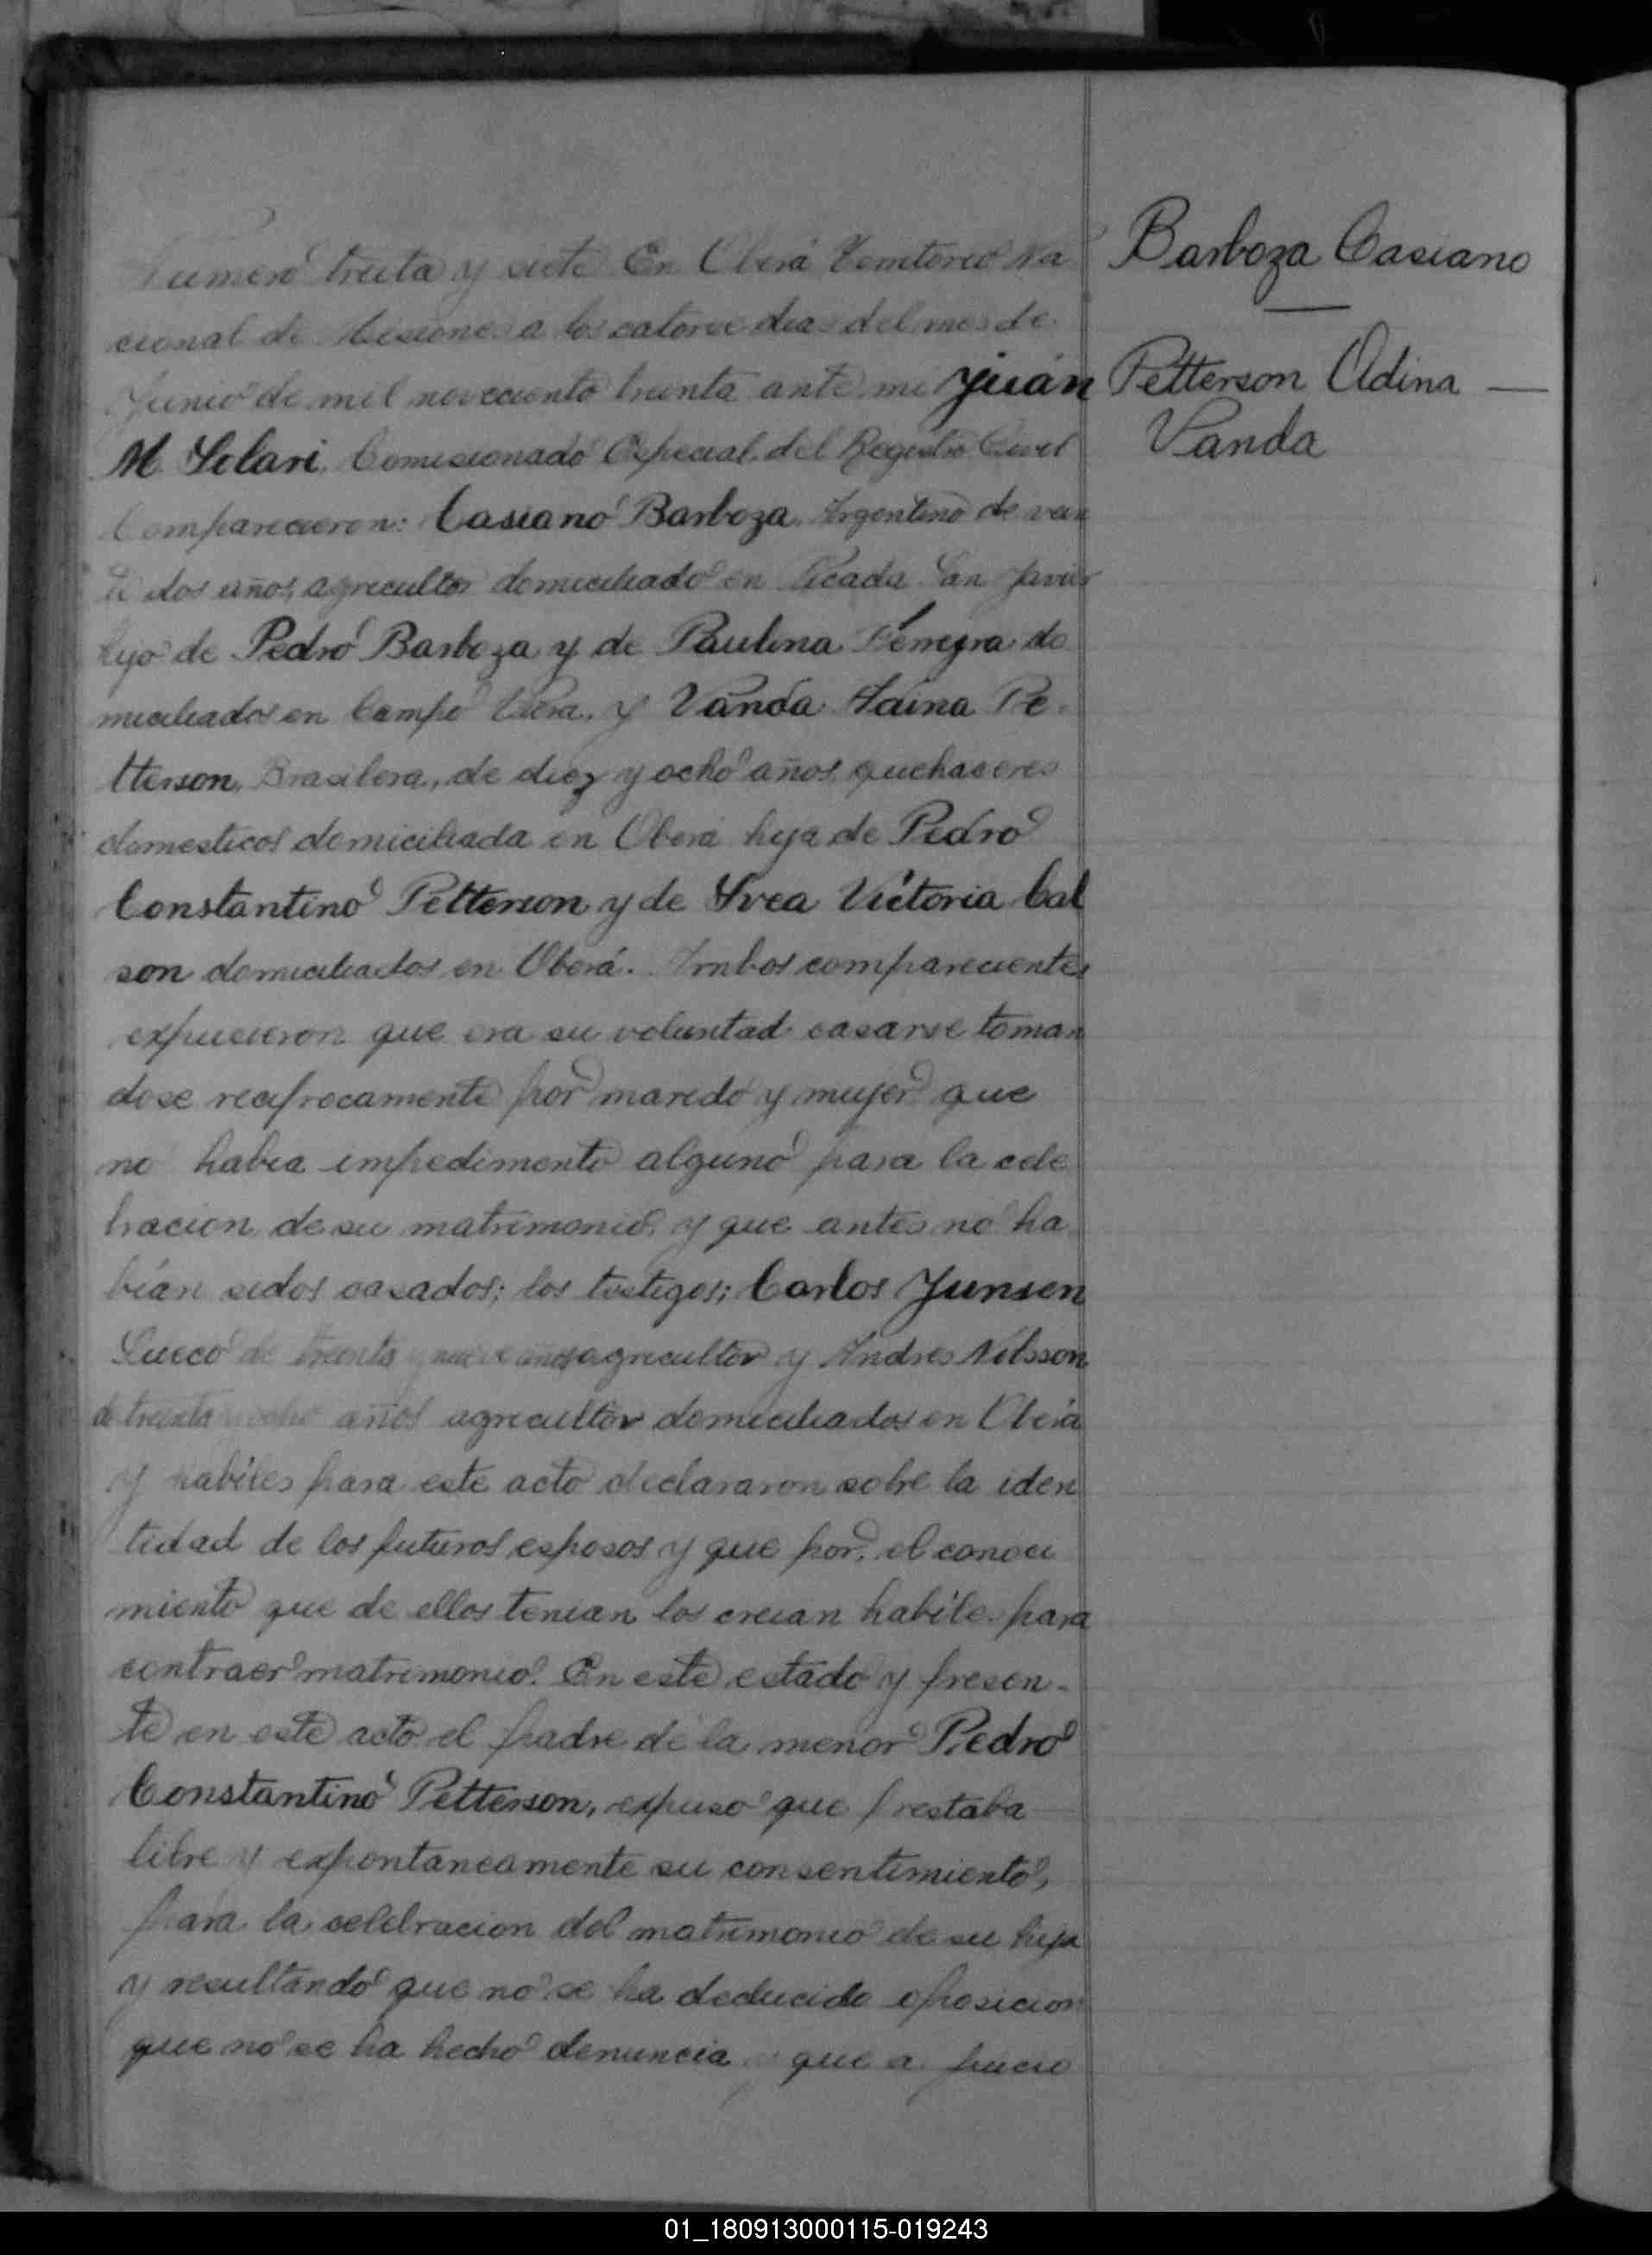 Barboza Casiano
Petterson Adina
Vanda
Numero treita y siete En Oberá Territorio Na
cional de Misiones a los catorce dias del mes de
Junio de mil novecciento treinta ante mi Juán
M. Solari. Comisionado Especial del Registro Civil
Comparecieron: Casiano Barboza, Argentino de vein
ti dos años, agricultor domiciliado en Picada San Javier
hijo de Pedro Barboza y de Paulina Ferreyra do
miciliados en Campo Viera, y Vanda Adina Pe-
tterson, Brasilera, de diez y ocho años, quehaceres
domesticos domiciliada en Oberá hija de Pedro
Constantino Petterson y de Svea Victoria Cal
son domiciliados en Oberá. Ambos comparecientes
expucieron que era su voluntad casarse toman
dose reciprocamente por marido y mujer que
no habia impedimento alguno para la cele
bracion de su matrimonio, y que antes no ha
bían sidos casados; los testigos; Carlos Junsen
Sueco de treinta y nueve años agricultor y Andres Nilsson
de treinta y ocho años agricultor domiciliados en Oberá
y habiles para este acto declararon sobre la iden
tidad de los futuros esposos y que por el conoci
miento que de ellos tenian los creian habiles para
contraer matrimonio. En este estado y presen-
te en este acto el padre de la menor Pedro
Constantino Petterson, expuso que prestaba
libre y expontaneamente su consentimiento,
para la celebracion del matrimonio de su hija
y resultando que no se ha deducido oposicion
que no se ha hecho denuncia y que a juicio
01_180913000115-019243